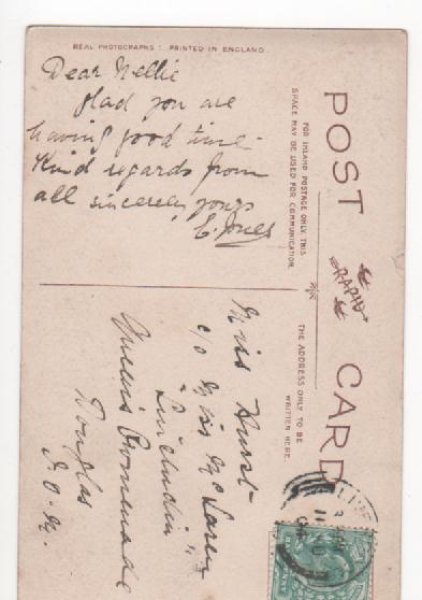 REAL PHOTOGRAPHS : PRINTED IN ENGLAND
Dear Nellie
Glad you are
having good time
Kind regards from
all sincerely yours
E. Jones
POST CARD
RAPID
FOR INLAND POSTAGE ONLY, THIS
SPACE MAY BE USED FOR COMMUNICATION.
THE ADDRESS ONLY TO BE
WRITTEN HERE.
Miss Hurst
c/o Miss
Queens Promenade
Douglas
I.O.M.